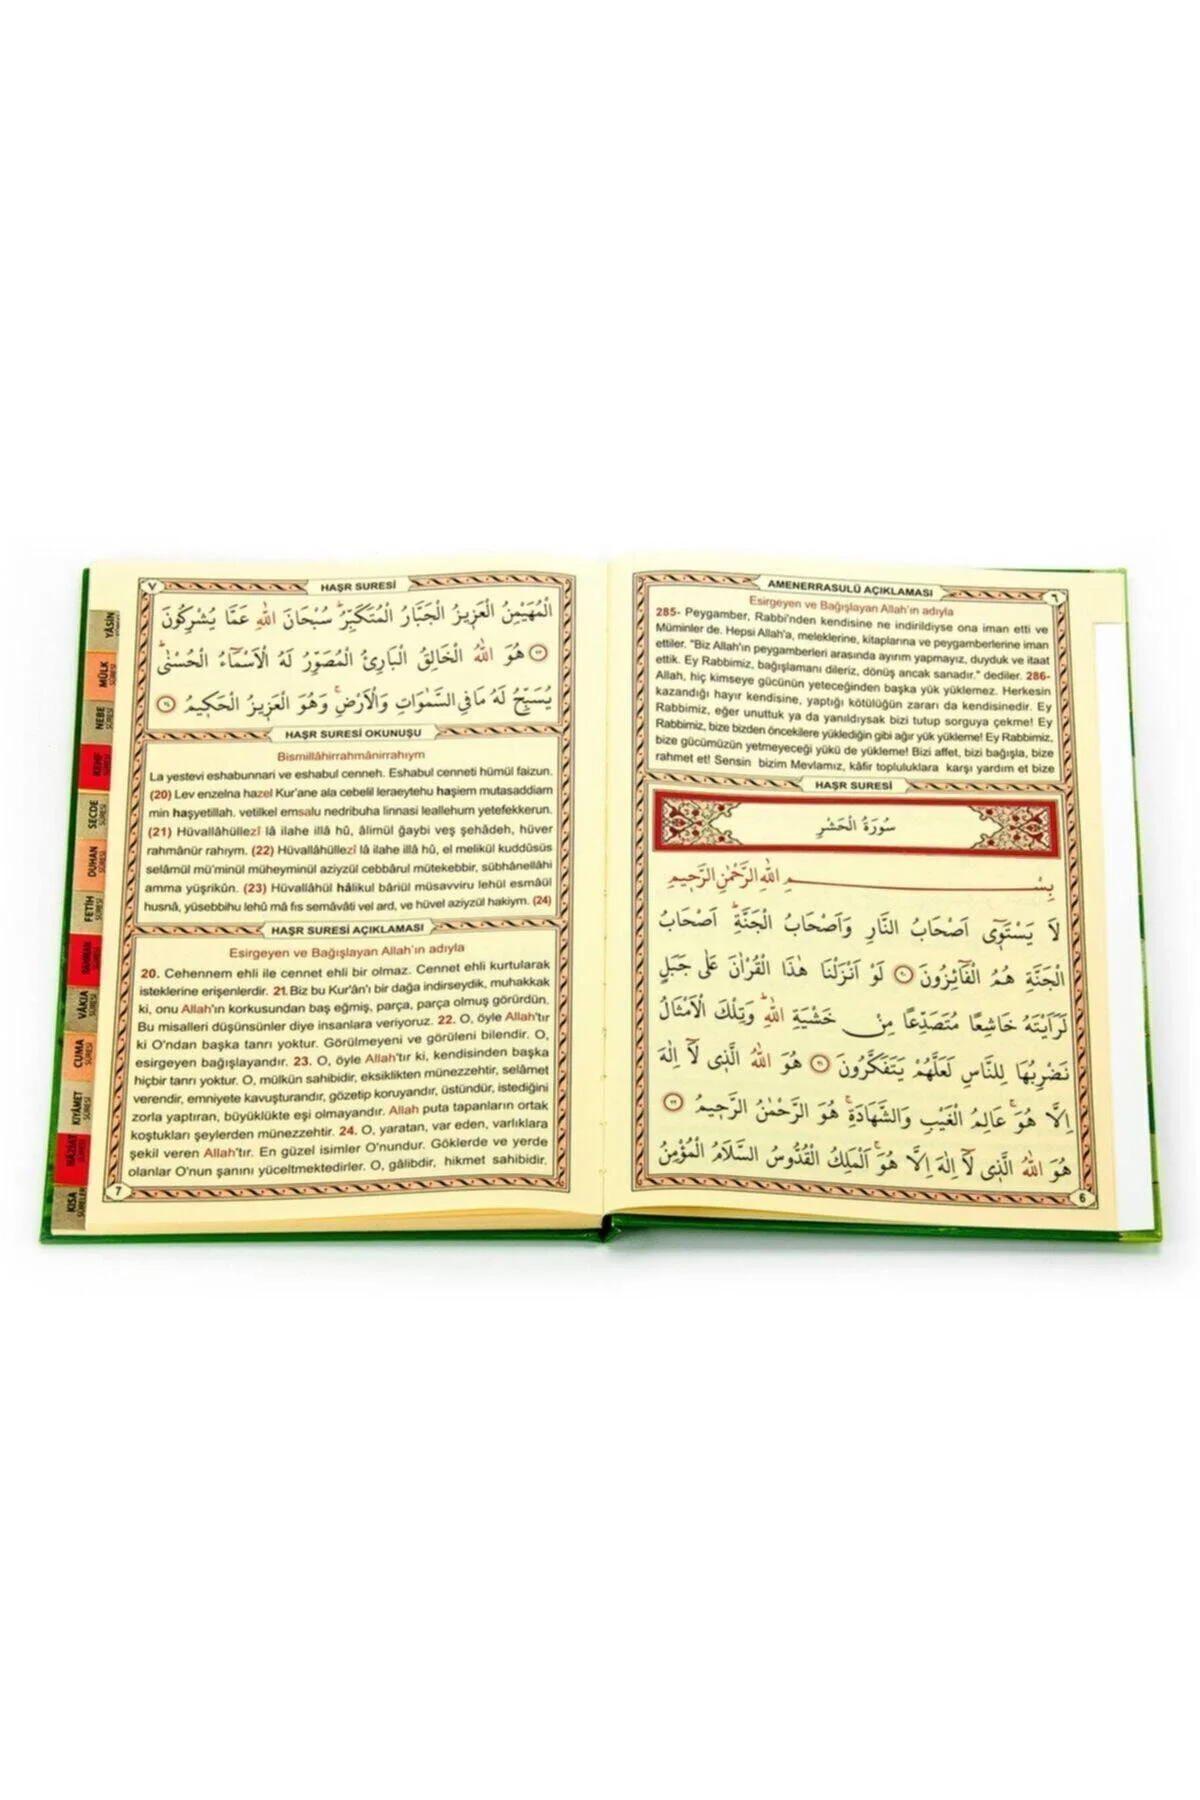 AMENERRASULÜ AÇIKLAMASI
٦
Esirgeyen ve Bağışlayan Allah'ın adıyla
285- Peygamber, Rabbi'nden kendisine ne indirildiyse ona iman etti ve
Müminler de. Hepsi Allah'a, meleklerine, kitaplarına ve peygamberlerine iman
ettiler. "Biz Allah'ın peygamberleri arasında ayırım yapmayız, duyduk ve itaat
ettik. Ey Rabbimiz, bağışlamanı dileriz, dönüş ancak sanadır." dediler. 286-
Allah, hiç kimseye gücünün yeteceğinden başka yük yüklemez. Herkesin
kazandığı hayır kendisine, yaptığı kötülüğün zararı da kendisinedir. Ey
Rabbimiz, eğer unuttuk ya da yanıldıysak bizi tutup sorguya çekme! Ey
Rabbimiz, bize bizden öncekilere yüklediğin gibi ağır yük yükleme! Ey Rabbimiz,
bize gücümüzün yetmeyeceği yükü de yükleme! Bizi affet, bizi bağışla, bize
rahmet et! Sensin bizim Mevlamız, kâfir topluluklara karşı yardım et bize
HAŞR SURESİ
سُورَةُ الْحَشْرِ
بِسْــــــمِ اللّٰهِ الرَّحْمٰنِ الرَّحٖيمِ
لَا يَسْتَوٖٓى اَصْحَابُ النَّارِ وَاَصْحَابُ الْجَنَّةِؕ اَصْحَابُ
الْجَنَّةِ هُمُ الْفَٓائِزُونَ ﴿٢٠﴾ لَوْ اَنْزَلْنَا هٰذَا الْقُرْاٰنَ عَلٰى جَبَلٍ
لَرَاَيْتَهُ خَاشِعًا مُتَصَدِّعًا مِنْ خَشْيَةِ اللّٰهِؕ وَتِلْكَ الْاَمْثَالُ
نَضْرِبُهَا لِلنَّاسِ لَعَلَّهُمْ يَتَفَكَّرُونَ ﴿٢١﴾ هُوَ اللّٰهُ الَّذٖى لَٓا اِلٰهَ
اِلَّا هُوَۚ عَالِمُ الْغَيْبِ وَالشَّهَادَةِۚ هُوَ الرَّحْمٰنُ الرَّحٖيمُ ﴿٢٢﴾
هُوَ اللّٰهُ الَّذٖى لَٓا اِلٰهَ اِلَّا هُوَۚ اَلْمَلِكُ الْقُدُّوسُ السَّلَامُ الْمُؤْمِنُ
6
٧
HAŞR SURESİ
الْمُهَيْمِنُ الْعَزٖيزُ الْجَبَّارُ الْمُتَكَبِّرُؕ سُبْحَانَ اللّٰهِ عَمَّا يُشْرِكُونَ
﴿٢٣﴾ هُوَ اللّٰهُ الْخَالِقُ الْبَارِئُ الْمُصَوِّرُ لَهُ الْاَسْمَٓاءُ الْحُسْنٰىؕ
يُسَبِّحُ لَهُ مَا فِي السَّمٰوَاتِ وَالْاَرْضِۚ وَهُوَ الْعَزٖيزُ الْحَكٖيمُ ﴿٢٤﴾
HAŞR SURESİ OKUNUŞU
Bismillâhirrahmânirrahıym
La yestevi eshabunnari ve eshabul cenneh. Eshabul cenneti hümül faizun.
(20) Lev enzelna hazel Kur'ane ala cebelil leraeytehu haşiem mutasaddiam
min haşyetillah. vetilkel emsalu nedribuha linnasi leallehum yetefekkerun.
(21) Hüvallâhüllezî lâ ilahe illâ hû, âlimül ğaybi veş şehâdeh, hüver
rahmânür rahıym. (22) Hüvallâhüllezî lâ ilahe illâ hû, el melikül kuddûsüs
selâmül mü'minül müheyminül aziyzül cebbârul mütekebbir, sübhânellâhi
amma yüşrikûn. (23) Hüvallâhül hâlikul bâriül müsavviru lehül esmâül
husnâ, yüsebbihu lehû mâ fis semâvâti vel ard, ve hüvel aziyzül hakiym. (24)
HAŞR SURESİ AÇIKLAMASI
Esirgeyen ve Bağışlayan Allah'ın adıyla
20. Cehennem ehli ile cennet ehli bir olmaz. Cennet ehli kurtularak
isteklerine erişenlerdir. 21. Biz bu Kur'ân'ı bir dağa indirseydik, muhakkak
ki, onu Allah'ın korkusundan baş eğmiş, parça, parça olmuş görürdün.
Bu misalleri düşünsünler diye insanlara veriyoruz. 22. O, öyle Allah'tır
ki O'ndan başka tanrı yoktur. Görülmeyeni ve görüleni bilendir. O,
esirgeyen bağışlayandır. 23. O, öyle Allah'tır ki, kendisinden başka
hiçbir tanrı yoktur. O, mülkün sahibidir, eksiklikten münezzehtir, selâmet
verendir, emniyete kavuşturandır, gözetip koruyandır, üstündür, istediğini
zorla yaptıran, büyüklükte eşi olmayandır. Allah puta tapanların ortak
koştukları şeylerden münezzehtir. 24. O, yaratan, var eden, varlıklara
şekil veren Allah'tır. En güzel isimler O'nundur. Göklerde ve yerde
olanlar O'nun şanını yüceltmektedirler. O, gâlibdir, hikmet sahibidir.
7
YÂSİN
MÜLK SÛRESİ
NEBE SÛRESİ
KEHF SÛRESİ
SECDE SÛRESİ
DUHAN SÛRESİ
FETİH SÛRESİ
RAHMAN SÛRESİ
VÂKIA SÛRESİ
CUMA SÛRESİ
KIYÂMET SÛRESİ
NÂZİAT SÛRESİ
KISA SÛRELER